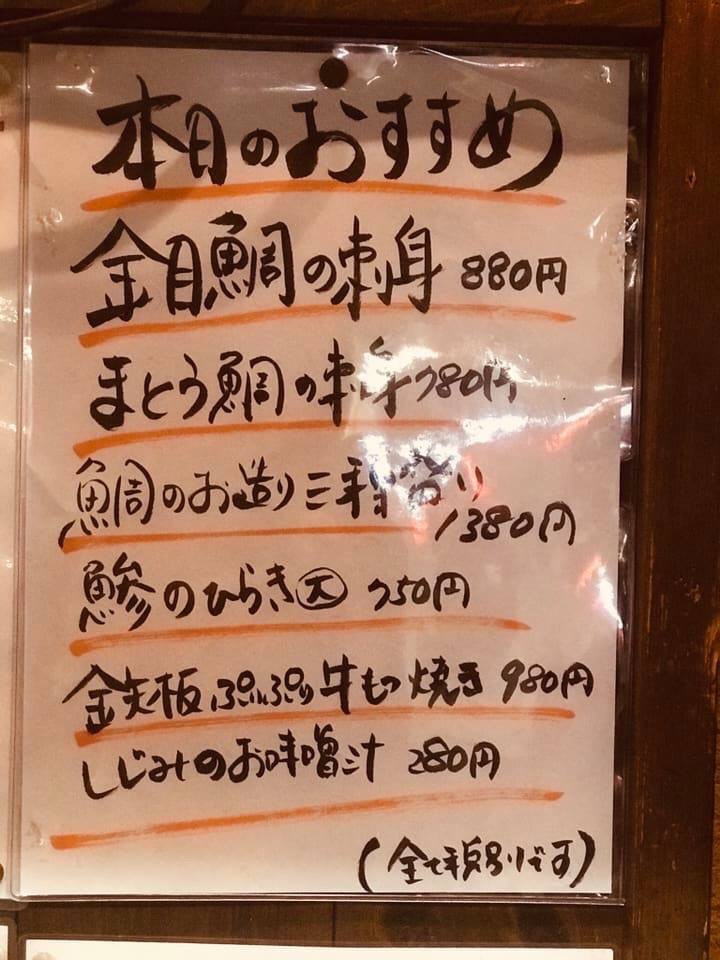 本日のおすすめ
金目鯛の刺身 880円
まとう鯛の刺身 780円
鯛のお造り三種盛り
1380円
鯵のひらき大 750円
鉄板ぷりぷり牛もつ焼き 980円
しじみのお味噌汁 280円
(全て税別りです)